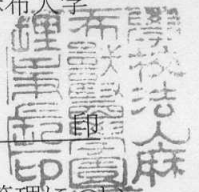 布大学
學校法人麻
布獸醫學園
理事長印
印